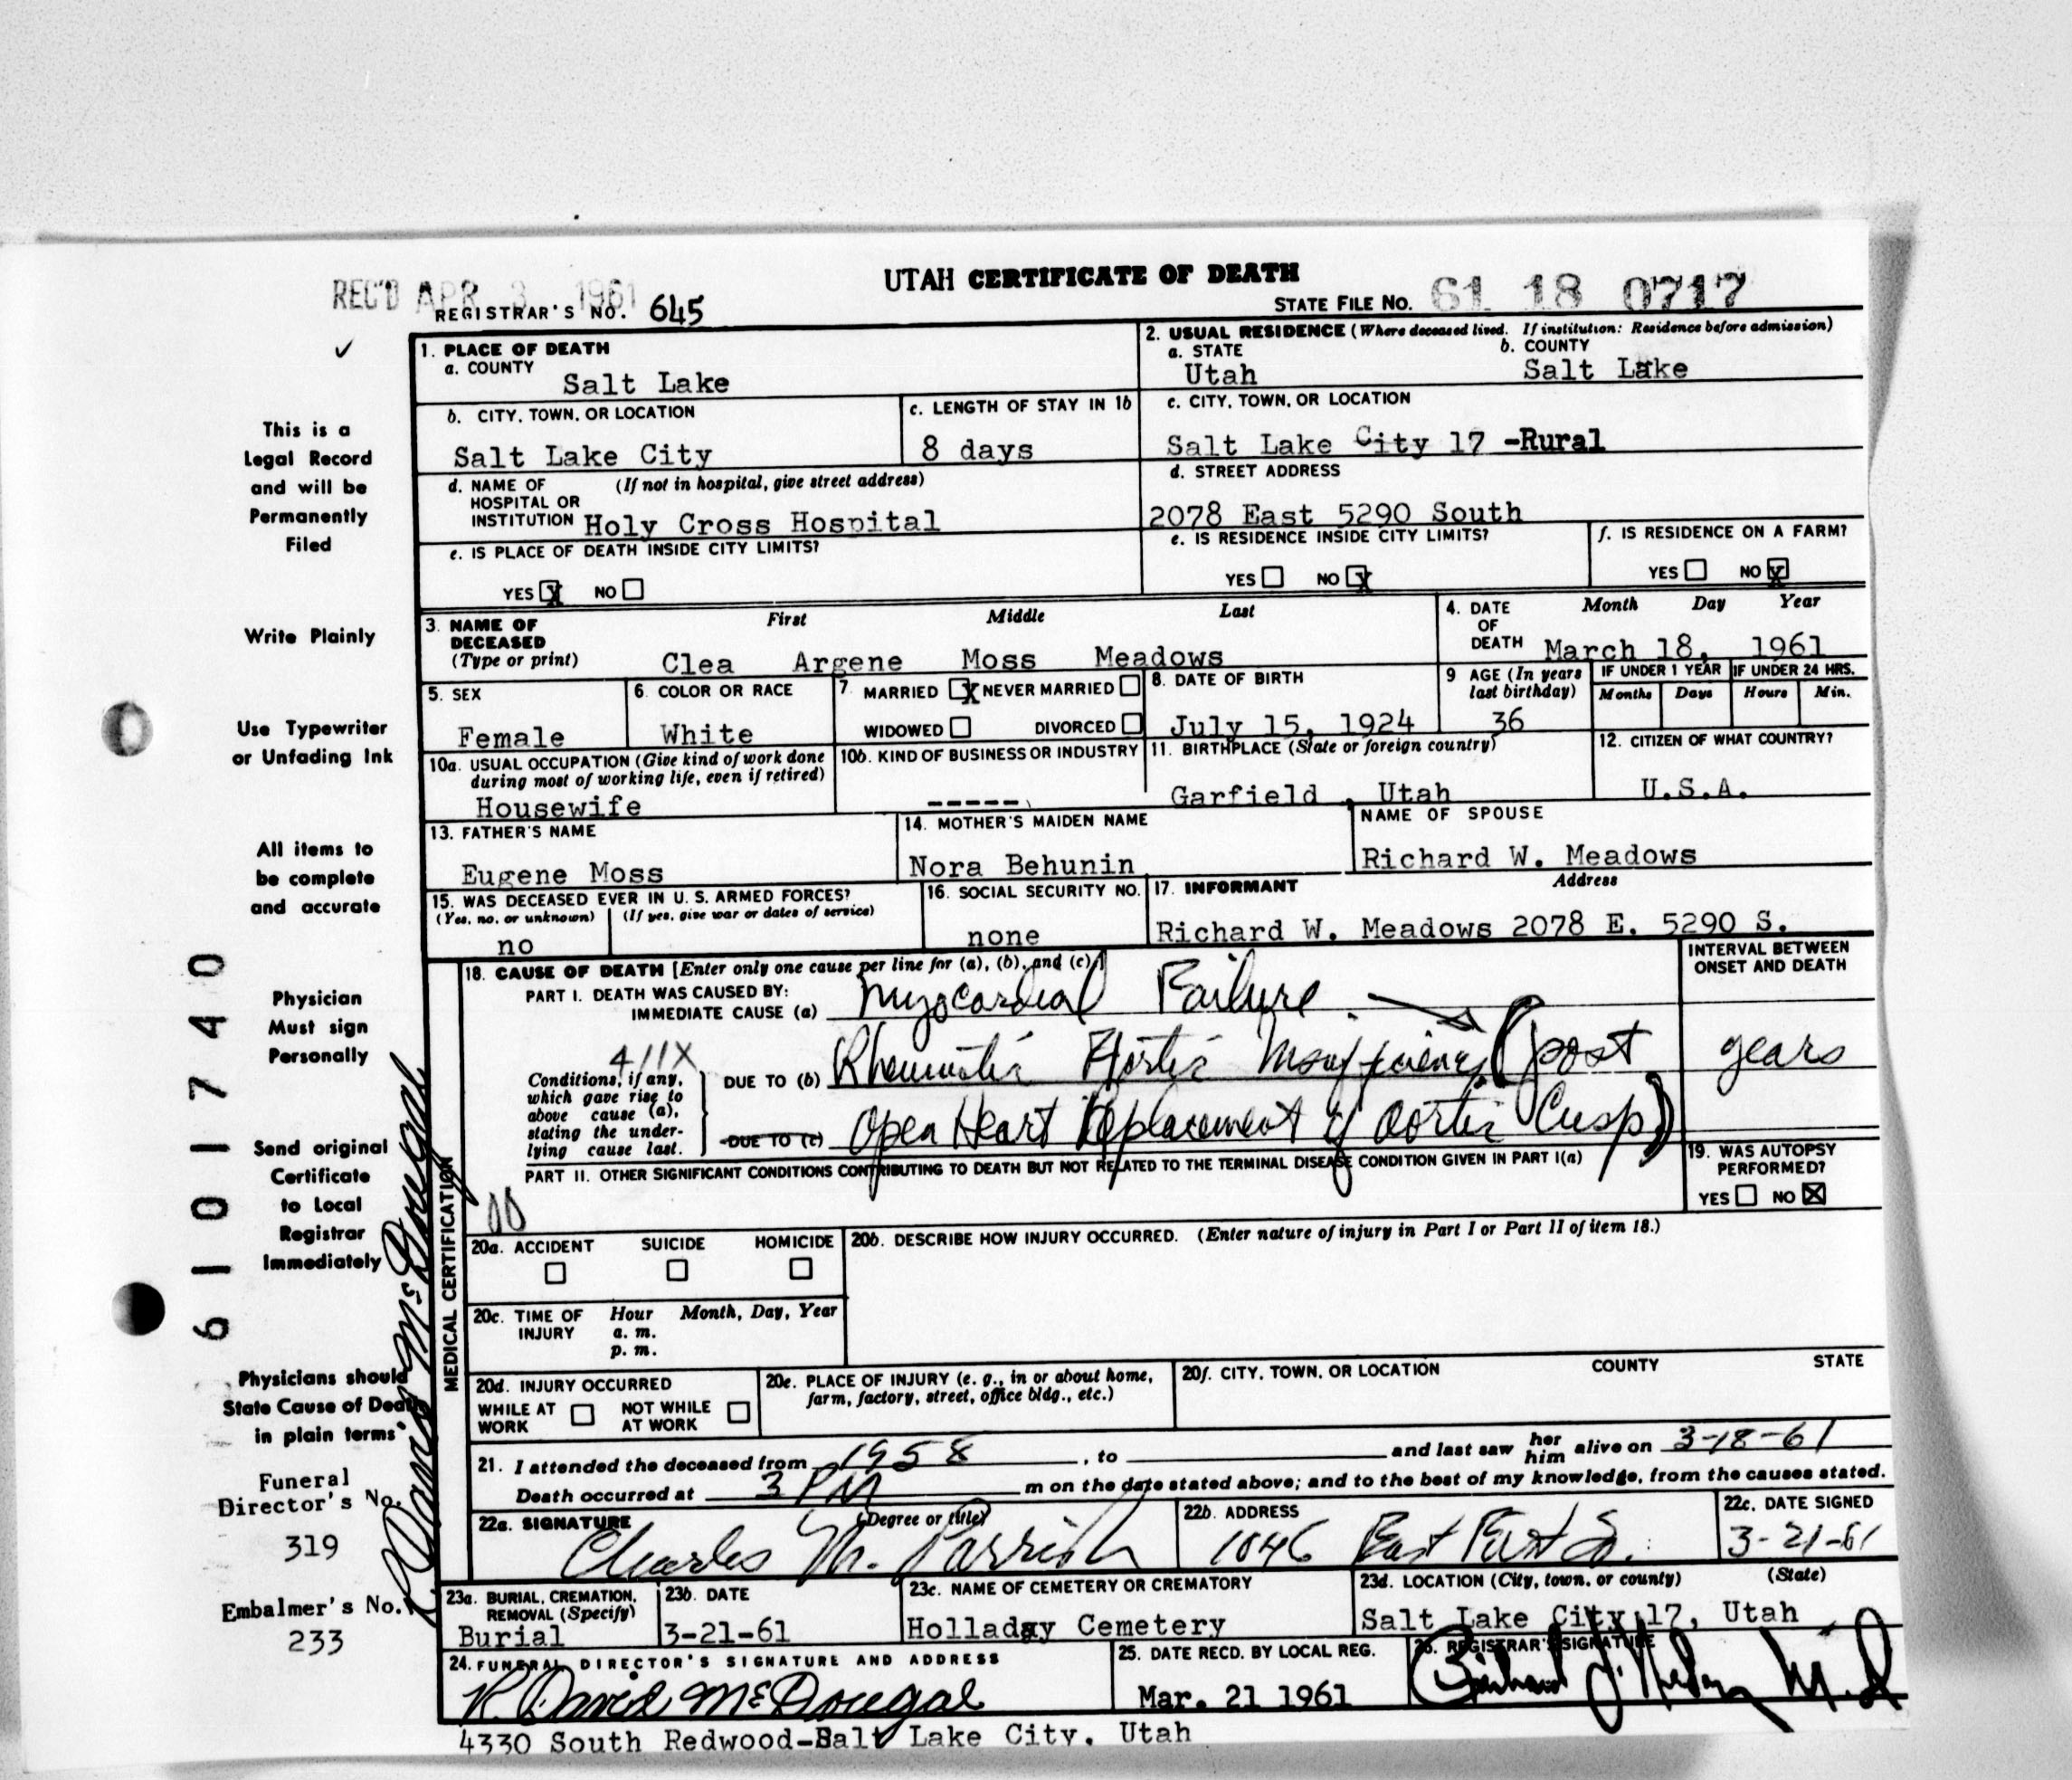 UTAH CERTIFICATE OF DEATH
REC'D APR 3 1961
REGISTRAR'S NO. 645
STATE FILE NO. 61 18 0717
✓
1. PLACE OF DEATH
a. COUNTY
Salt Lake
2. USUAL RESIDENCE (Where deceased lived. If institution: Residence before admission)
a. STATE
Utah
b. COUNTY
Salt Lake
b. CITY, TOWN, OR LOCATION
Salt Lake City
c. LENGTH OF STAY IN 1b
8 days
c. CITY, TOWN, OR LOCATION
Salt Lake City 17 -Rural
d. NAME OF (If not in hospital, give street address)
HOSPITAL OR
INSTITUTION Holy Cross Hospital
d. STREET ADDRESS
2078 East 5290 South
e. IS PLACE OF DEATH INSIDE CITY LIMITS?
YES X NO
e. IS RESIDENCE INSIDE CITY LIMITS?
YES NO X
f. IS RESIDENCE ON A FARM?
YES NO X
3. NAME OF DECEASED
(Type or print)
First Middle Last
Clea Argene Moss Meadows
4. DATE OF DEATH
Month Day Year
March 18, 1961
5. SEX
Female
6. COLOR OR RACE
White
7. MARRIED X NEVER MARRIED
WIDOWED DIVORCED
8. DATE OF BIRTH
July 15, 1924
9 AGE (In years last birthday)
36
IF UNDER 1 YEAR
Months Days
IF UNDER 24 HRS.
Hours Min.
10a. USUAL OCCUPATION (Give kind of work done
during most of working life, even if retired)
Housewife
10b. KIND OF BUSINESS OR INDUSTRY
-----
11. BIRTHPLACE (State or foreign country)
Garfield , Utah
12. CITIZEN OF WHAT COUNTRY?
U.S.A.
13. FATHER'S NAME
Eugene Moss
14. MOTHER'S MAIDEN NAME
Nora Behunin
NAME OF SPOUSE
Richard W. Meadows
15. WAS DECEASED EVER IN U. S. ARMED FORCES?
(Yes, no, or unknown) (If yes, give war or dates of service)
no
16. SOCIAL SECURITY NO.
none
17. INFORMANT Address
Richard W. Meadows 2078 E. 5290 S.
MEDICAL CERTIFICATION
18. CAUSE OF DEATH [Enter only one cause per line for (a), (b), and (c)]
PART I. DEATH WAS CAUSED BY:
IMMEDIATE CAUSE (a) Myocardial Failure
INTERVAL BETWEEN
ONSET AND DEATH
411X
Conditions, if any,
which gave rise to
above cause (a),
stating the under-
lying cause last.
DUE TO (b) Rheumatic Aortic Insufficiency (post
years
DUE TO (c) Open Heart Replacement of Aortic Cusp)
PART II. OTHER SIGNIFICANT CONDITIONS CONTRIBUTING TO DEATH BUT NOT RELATED TO THE TERMINAL DISEASE CONDITION GIVEN IN PART I(a)
19. WAS AUTOPSY
PERFORMED?
YES NO X
20a. ACCIDENT SUICIDE HOMICIDE
20b. DESCRIBE HOW INJURY OCCURRED. (Enter nature of injury in Part I or Part II of item 18.)
20c. TIME OF INJURY
Hour Month, Day, Year
a. m.
p. m.
20d. INJURY OCCURRED
WHILE AT WORK NOT WHILE AT WORK
20e. PLACE OF INJURY (e. g., in or about home,
farm, factory, street, office bldg., etc.)
20f. CITY, TOWN, OR LOCATION COUNTY STATE
21. I attended the deceased from 1958, to and last saw her him alive on 3-18-61
Death occurred at 3 PM m on the date stated above; and to the best of my knowledge, from the causes stated.
22a. SIGNATURE (Degree or title)
Charles M. Parrish
22b. ADDRESS
1046 East First So.
22c. DATE SIGNED
3-21-61
23a. BURIAL, CREMATION,
REMOVAL (Specify)
Burial
23b. DATE
3-21-61
23c. NAME OF CEMETERY OR CREMATORY
Holladay Cemetery
23d. LOCATION (City, town, or county) (State)
Salt Lake City 17, Utah
24. FUNERAL DIRECTOR'S SIGNATURE AND ADDRESS
R. David McDougal
4330 South Redwood-Salt Lake City, Utah
25. DATE RECD. BY LOCAL REG.
Mar. 21 1961
26. REGISTRAR'S SIGNATURE
This is a
Legal Record
and will be
Permanently
Filed
Write Plainly
Use Typewriter
or Unfading Ink
All items to
be complete
and accurate
Physician
Must sign
Personally
Send original
Certificate
to Local
Registrar
Immediately
Physicians should
State Cause of Death
in plain terms
Funeral
Director's No.
319
Embalmer's No.
233
6101740
R. David McDougal